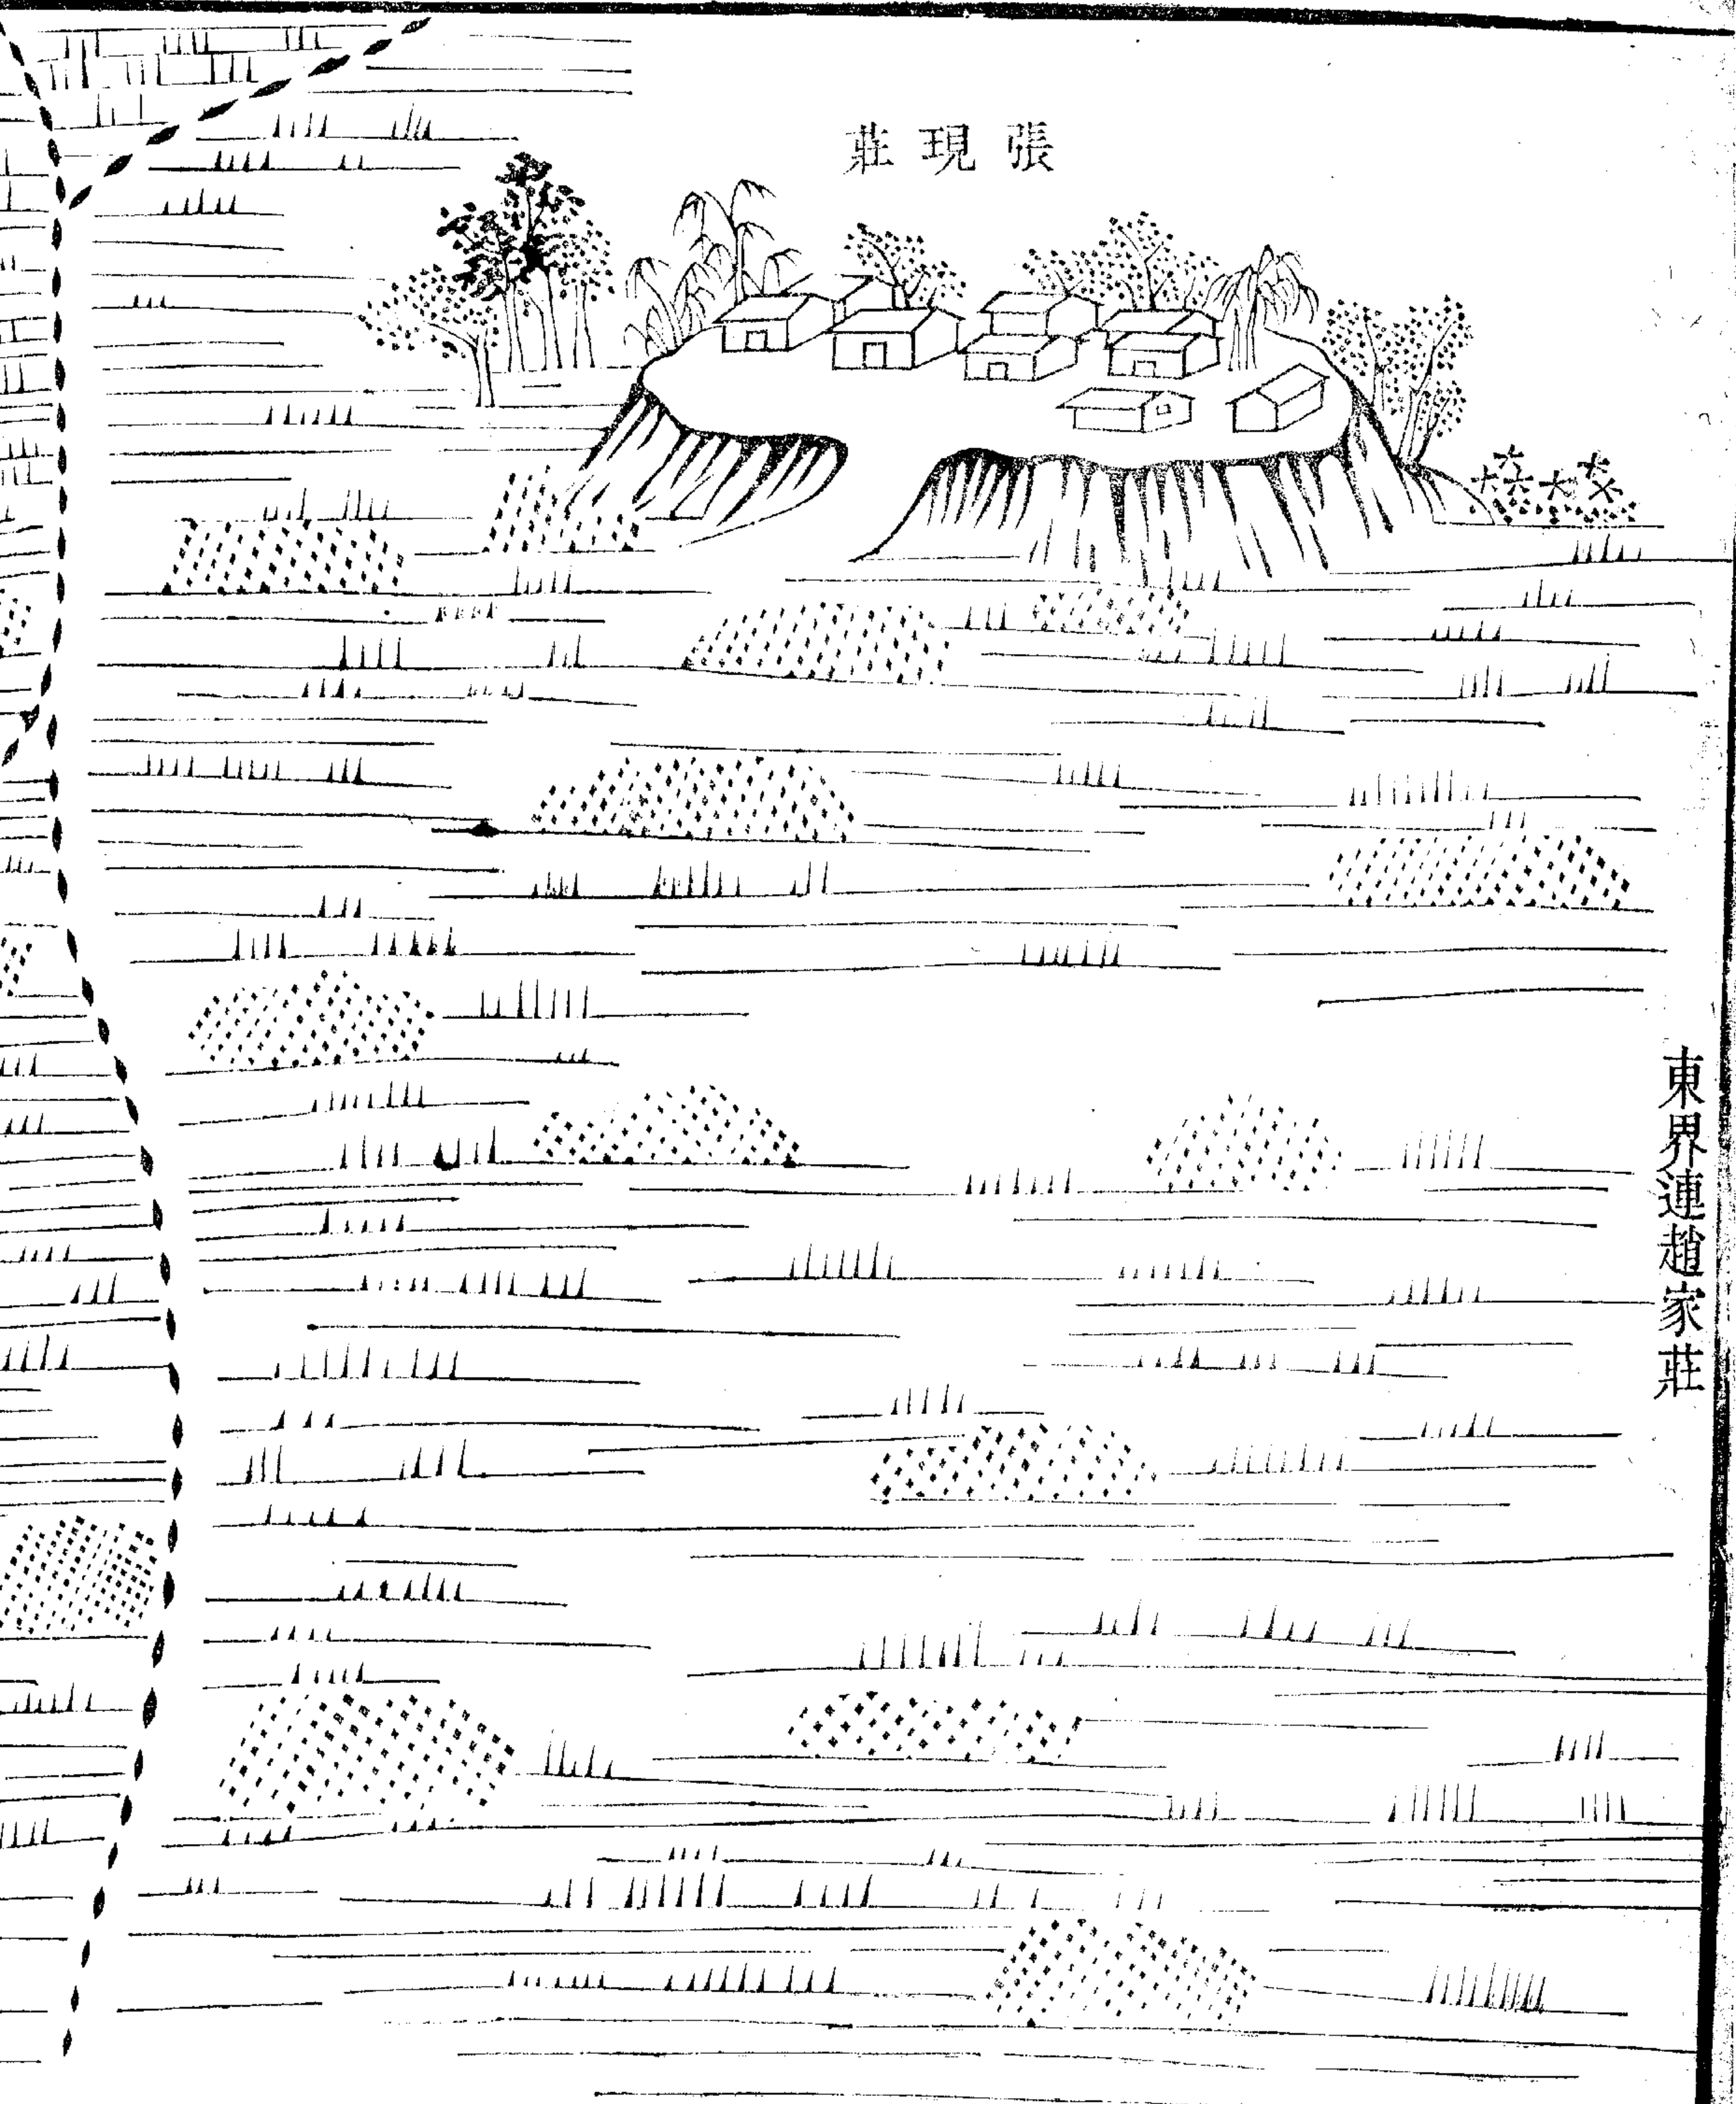 張現莊
東界連趙家莊